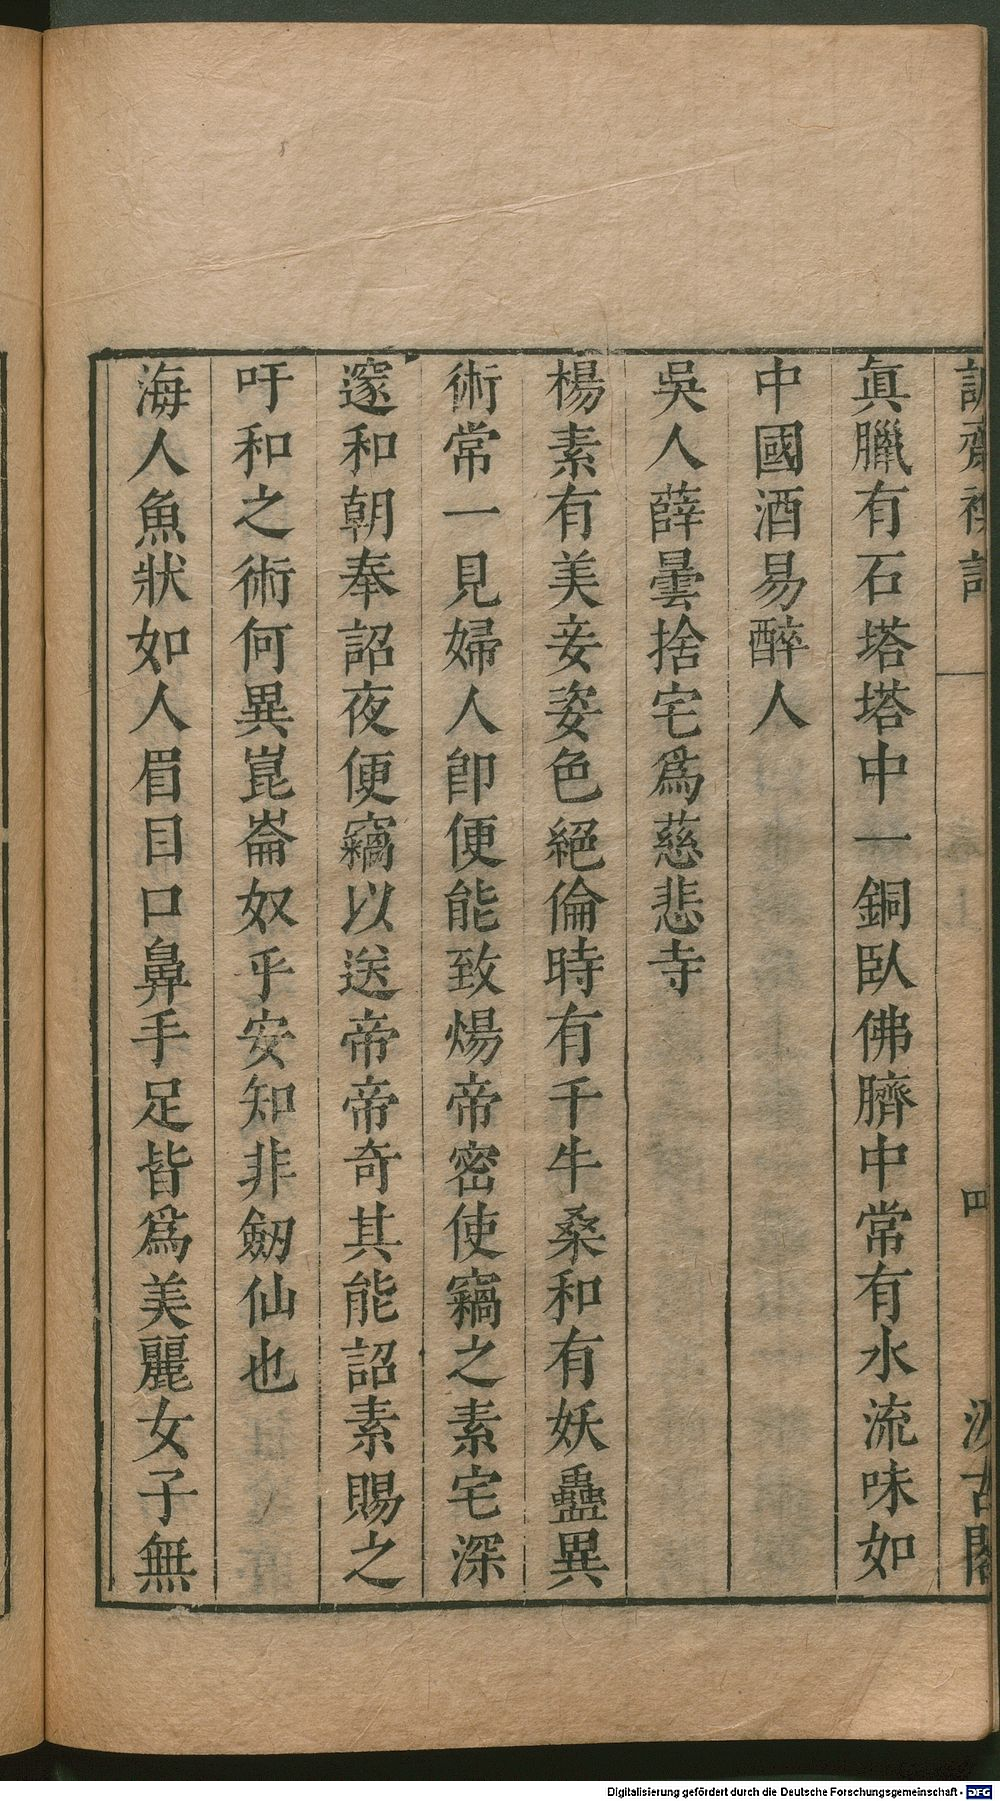 誠齋襍記 四 汲古閣
眞臘有石塔塔中一銅臥佛臍中常有水流味如
中國酒易醉人
吳人薛曇捨宅爲慈悲寺
楊素有美妾姿色絕倫時有千牛桑和有妖蠱異
術常一見婦人卽便能致煬帝密使竊之素宅深
邃和朝奉詔夜便竊以送帝帝奇其能詔素賜之
吁和之術何異崑崙奴乎安知非劒仙也
海人魚狀如人眉目口鼻手足皆爲美麗女子無
Digitalisierung gefördert durch die Deutsche Forschungsgemeinschaft - DFG